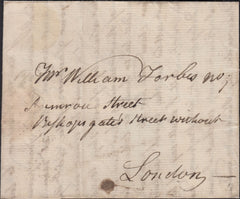 Mr William Forbes no;
Street
Bishopsgate Street without
London